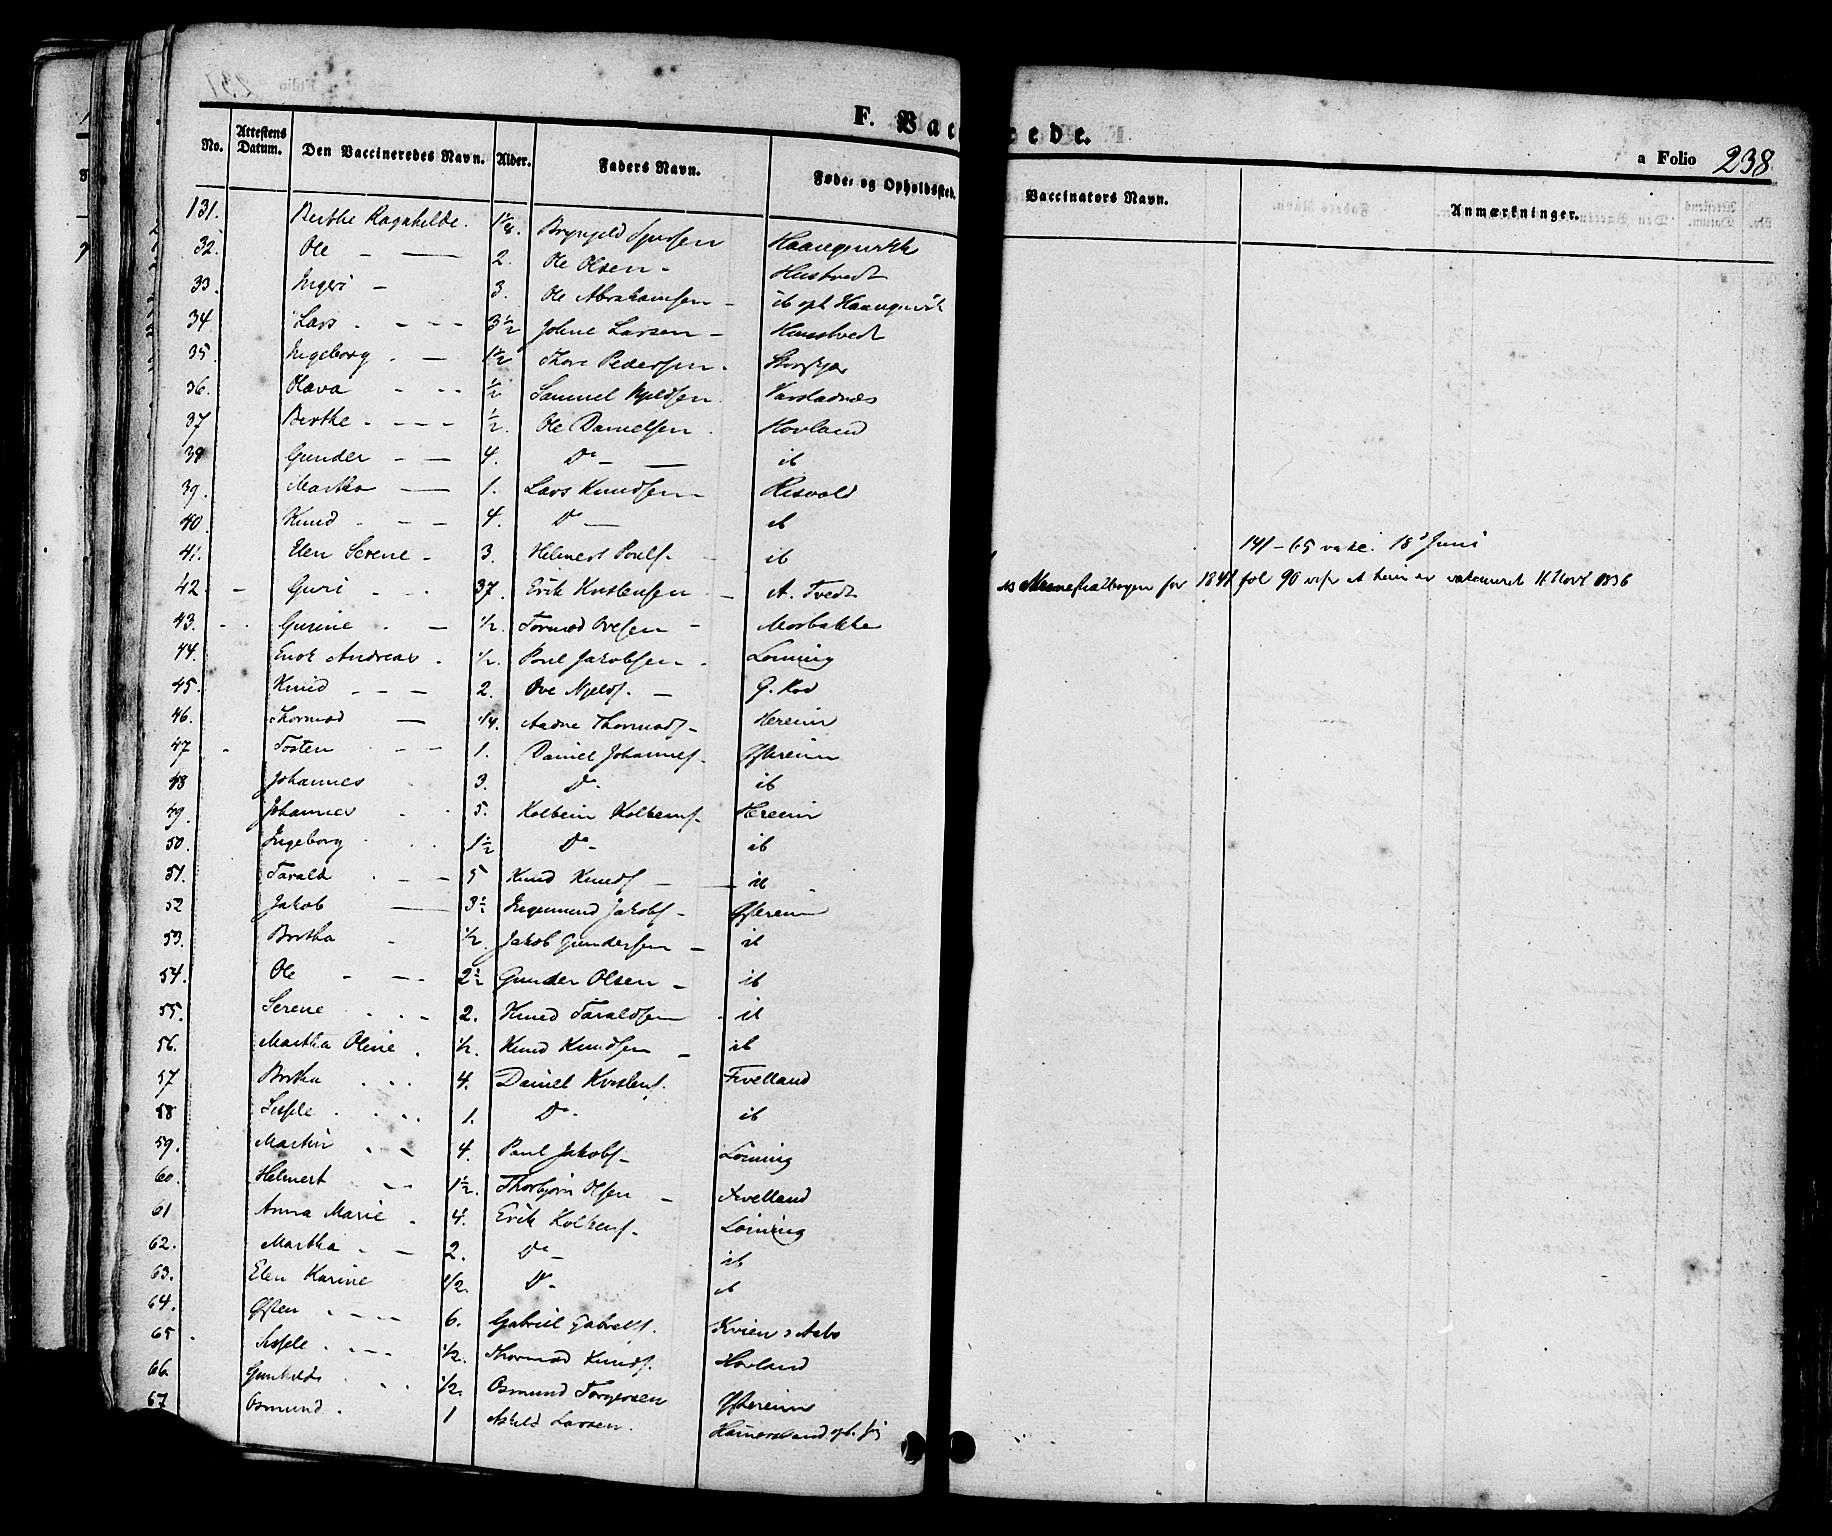 F. Vac
cede.
a Folio 238
No. Attestens Datum. Den Vaccineredes Navn. Alder. Faders Navn. Føde- og Opholdssted. Vaccinators Navn. Anmærkninger.
131. Berthe Ragnhilde. 1/4.
32. Ole - — 2. Ole Olsen - Hustvedt
33. Ingeri - 3. Ole Abrahamsen - ib oph Haaugevik
34 Lars. - - - 3 1/2 Johne Larsen - Hustvedt
35. Ingeborg. — 1 1/2 Thore Pedersen.
36. Olava - - - 1/2 Samuel Kjeldsen.
37 Berthe - - - - 1/2. Ole Danielsen. Hovland
38 Gunder - — 4. Do - — ib
39. Martha — 1. Lars Knudsen - Risvold
40 Knud - - - 4. Do — ib
41. Elen Serene - 3. Helmert Pouls. - ib 141-65 vakc. 18d Juni
42. - Guri - - . 37. Erik Kristensen - A. Tvedt for 1841 fol 90 at hun er vakcineret 11 Novr 1836
43. - . Gurine . — 1/2. Tormod Ovesen - Morbakke
44. Enok Andreas. 1/2. Poul Jakobsen. Lønning
45. Knud - - - 2. Ove Njelds. -
46. Thormod — 1/4. Aadne Thormods - Hereim
47 - Tosten - - - 1. Daniel Johannes. Østereim
48 Johannes 3. Do - ib
49. Johannes . . 5. Kolbein Kolbens. Hereim
50. Ingeborg . . 1 1/2 Do - ib
51. Tarald . - - 5 Knud Knuds — ib
52 Jakob — 3 1/2 Ingemund Jakobs - Østereim
53. Bertha - 1/2. Jakob Gundersen - ib
54. Ole - - - 2 1/2 Gunder Olsen - ib
55. Serene . . . - 2. Knud Taraldsen - ib
56. Martha Oline . 1/2. Knud Knudsen - ib
57 Bertha . . . 4. Daniel Kristens. Fivelland
58 Sissele . . . . 1. Do - ib
59. Martin . . . 4. Paul Jakobs - Lønning
60. Helmert . . - 1 1/2. Thorbjørn Olsen - Fivelland
61 Anna Marie . 4. Erik Kolbens. Lønning
62. Martha . — 2. Do - ib
63. Elen Karine 1/2. Do - ib
64. Østen . - - - 6. Gabriel Gabriels.
65 . Sissele . - - - 1/2. Thormod Knuds. Hovland
66. Gunhilde . . . 1/2. Osmund Torgersen Østereim
67 Osmund . 1 Larsen.